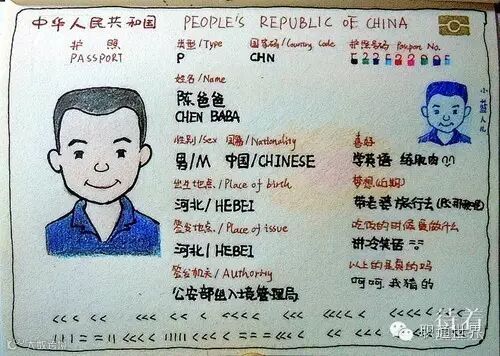 中华人民共和国 PEOPLE'S REPUBLIC OF CHINA
护照
PASSPORT
类型/Type
P
国家码/Country Code
CHN
护照号码/Passport No.
小蓝人儿
姓名/Name
陈爸爸
CHEN BABA
性别/Sex 国籍/Nationality
男/M 中国/CHINESE
出生地点/Place of birth
河北/HEBEI
签发地点/Place of issue
河北/HEBEI
签发机关/Authority
公安部出入境管理局
喜好
学英语 练肌肉
梦想(近期)
带老婆旅行去
吃饭的时候喜欢做什么
讲冷笑话
以上的是真的吗
呵呵 我猜的
职通世界